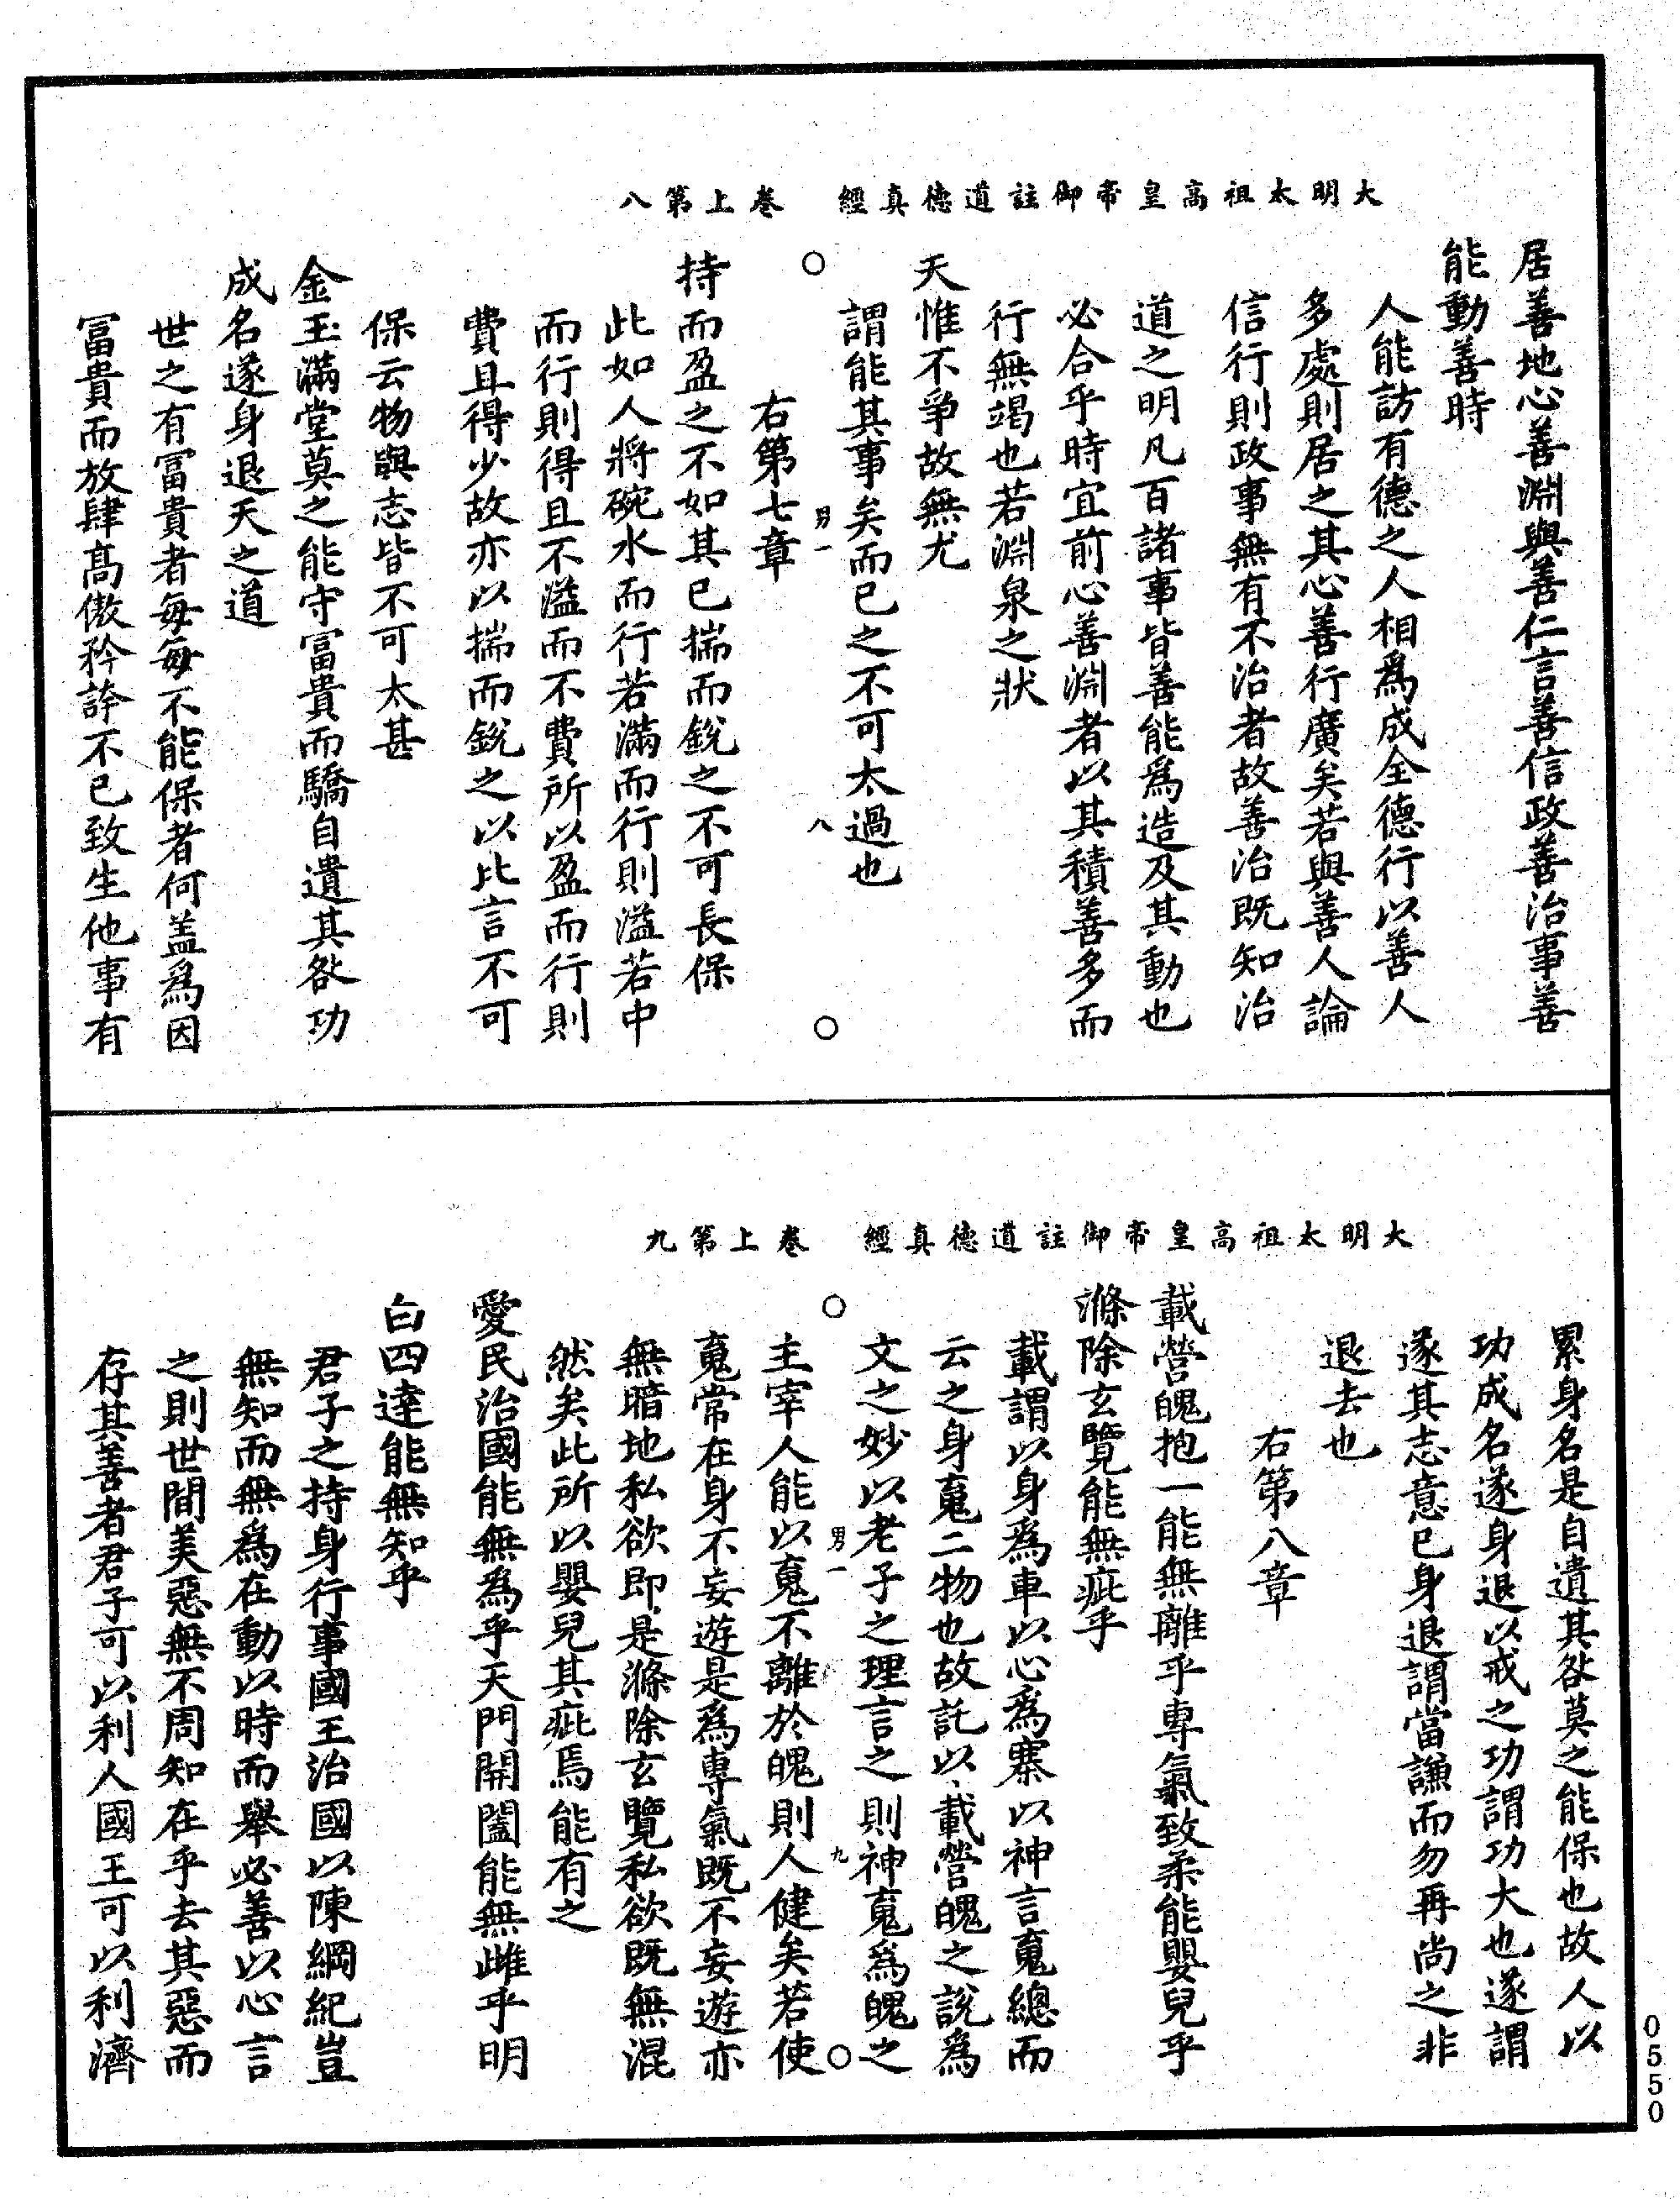 大明太祖高皇帝御註道德真經　卷上第八
居善地心善淵與善仁言善信政善治事善
能動善時
人能訪有德之人相為成全德行以善人
多處則居之其心善行廣矣若與善人論
信行則政事無有不治者故善治既知治
道之明凡百諸事皆善能為造及其動也
必合乎時宜前心善淵者以其積善多而
行無竭也若淵泉之狀
天惟不爭故無尤
謂能其事矣而已之不可太過也
右第七章
男一　八
持而盈之不如其已揣而銳之不可長保
此如人將碗水而行若滿而行則溢若中
而行則得且不溢而不費所以盈而行則
費且得少故亦以揣而銳之以比言不可
保云物與志皆不可太甚
金玉滿堂莫之能守冨貴而驕自遺其咎功
成名遂身退天之道
世之有冨貴者每每不能保者何盖為因
冨貴而放肆高傲矜誇不已致生他事有
大明太祖高皇帝御註道德真經　卷上第九
累身名是自遺其咎莫之能保也故人以
功成名遂身退以戒之功謂功大也遂謂
遂其志意已身退謂當謙而勿再尚之非
退去也
右第八章
載營魄抱一能無離乎專氣致柔能嬰兒乎
滌除玄覽能無疵乎
載謂以身為車以心為寨以神言䰟總而
云之身䰟二物也故託以載營魄之說為
文之妙以老子之理言之則神䰟為魄之
男一　九
主宰人能以䰟不離於魄則人健矣若使
䰟常在身不妄遊是為專氣既不妄遊亦
無暗地私欲即是滌除玄覽私欲既無混
然矣此所以嬰兒其疵焉能有之
愛民治國能無為乎天門開闔能無雌乎明
白四達能無知乎
君子之持身行事國王治國以陳綱紀豈
無知而無為在動以時而舉必善以心言
之則世間美惡無不周知在乎去其惡而
存其善者君子可以利人國王可以利濟
0550